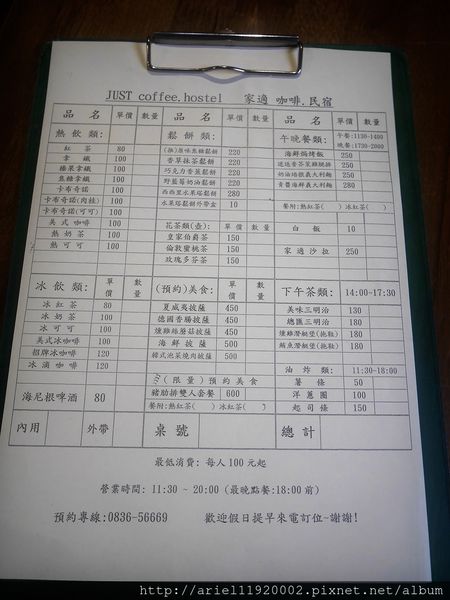 JUST coffee.hostel 家適 咖啡.民宿
品 名 單價 數量
熱飲類:
紅 茶 80
拿 鐵 100
榛果拿鐵 100
焦糖拿鐵 100
卡布奇諾 100
卡布奇諾(肉桂) 100
卡布奇諾(可可) 100
美式咖啡 100
熱奶茶 100
熱可可 100
冰飲類: 單價 數量
冰紅茶 80
冰奶茶 100
冰可可 100
美式冰咖啡 100
招牌冰咖啡 120
冰滴咖啡 120
海尼根啤酒 80
品 名 單價 數量
鬆餅類:
(推)原味焦糖鬆餅 220
香草抹茶鬆餅 220
巧克力香蕉鬆餅 220
野藍莓奶油鬆餅 220
西西里水果塔鬆餅 280
水果塔鬆餅外帶盒 10
花茶類(壺): 單價 數量
皇家伯爵茶 150
倫敦蜜桃茶 150
玫瑰多芬茶 150
(預約)美食: 單價 數量
夏威夷披薩 450
德國香腸披薩 450
燻雞絲蘑菇披薩 500
海鮮披薩 500
韓式泡菜燒肉披薩 500
(限量)預約美食
豬肋排雙人套餐 600
餐附:熱紅茶( ) 冰紅茶( )
品 名 單價 數量
午晚餐類: 午餐:1130-1400
晚餐:1730-2000
海鮮焗烤飯 250
250
250
青醬海鮮義大利麵 250
餐附:熱紅茶( )冰紅茶( )
白 飯 10
家適沙拉 250
下午茶類: 14:00-17:30
美味三明治 130
總匯三明治 180
燻雞潛艇堡(拖鞋) 180
鮪魚潛艇堡(拖鞋) 180
油炸類: 11:30-18:00
薯 條 50
洋蔥圈 100
起司條 150
內用 外帶 桌號 總計
最低消費: 每人100元起
營業時間: 11:30 ~ 20:00 (最晚點餐:18:00前)
預約專線:0836-56669 歡迎假日提早來電訂位~謝謝!
http://ariel11920002.pixnet.net/album